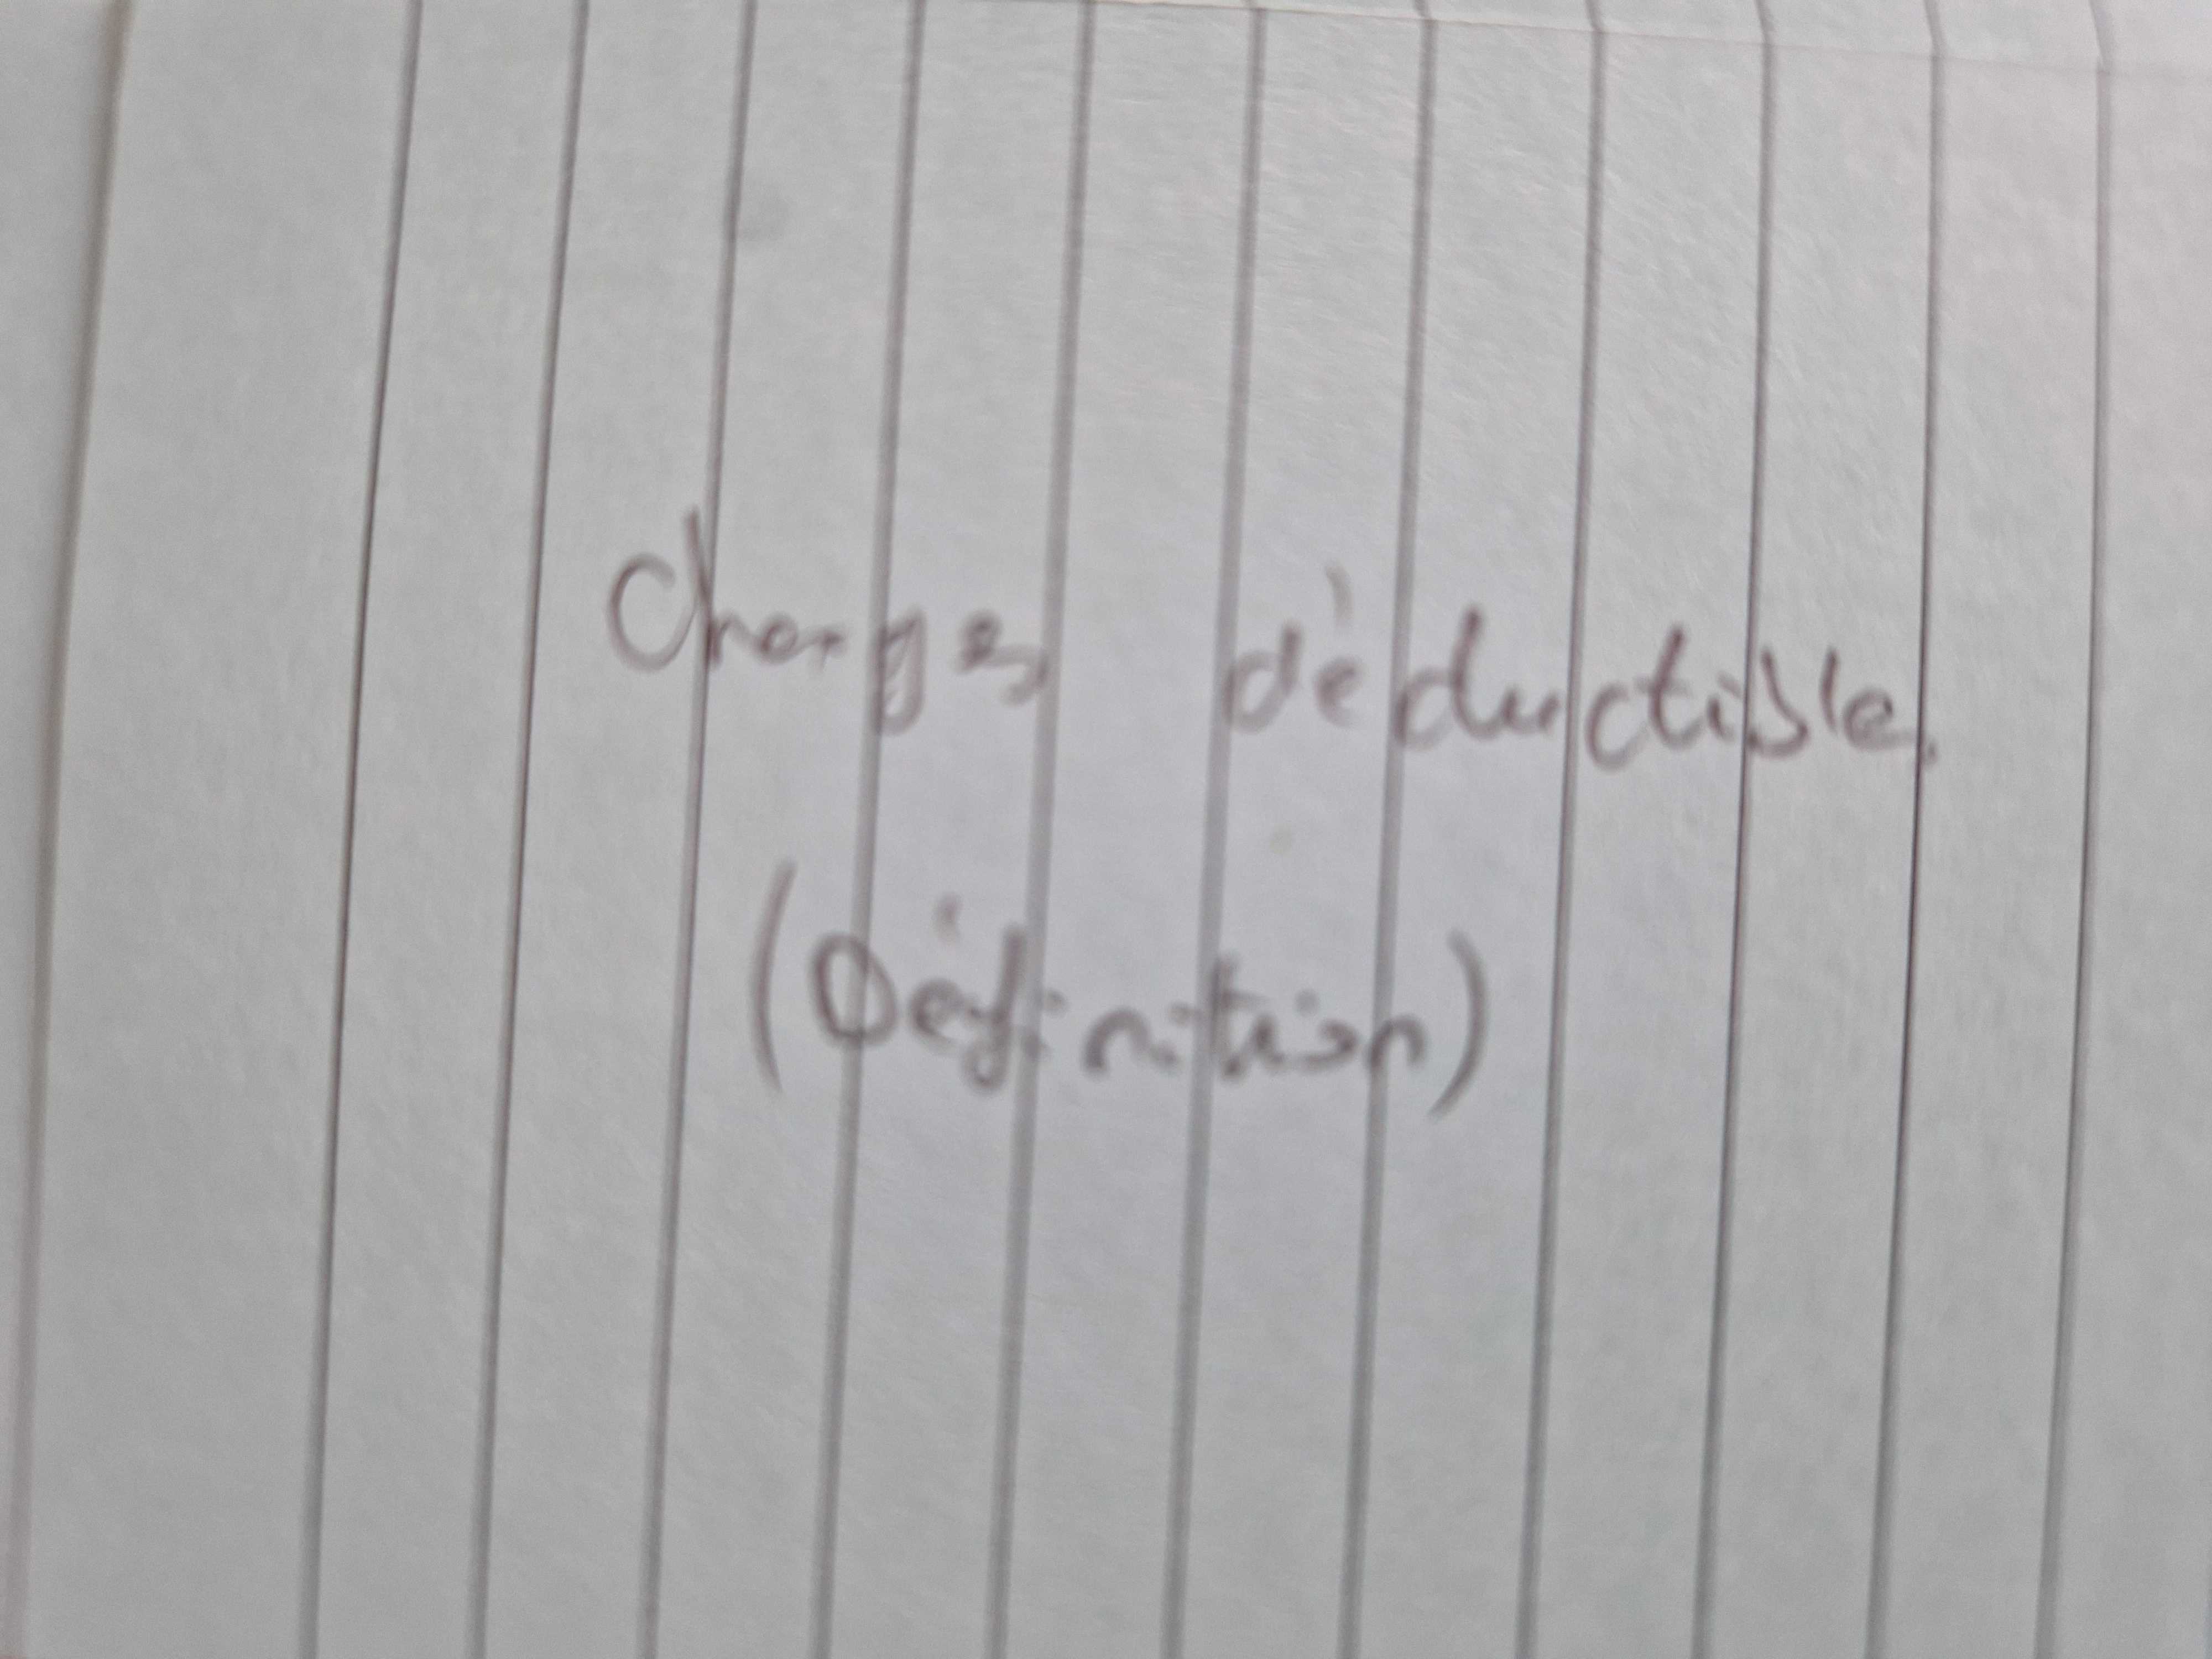 Charges déductible.
(Définition)